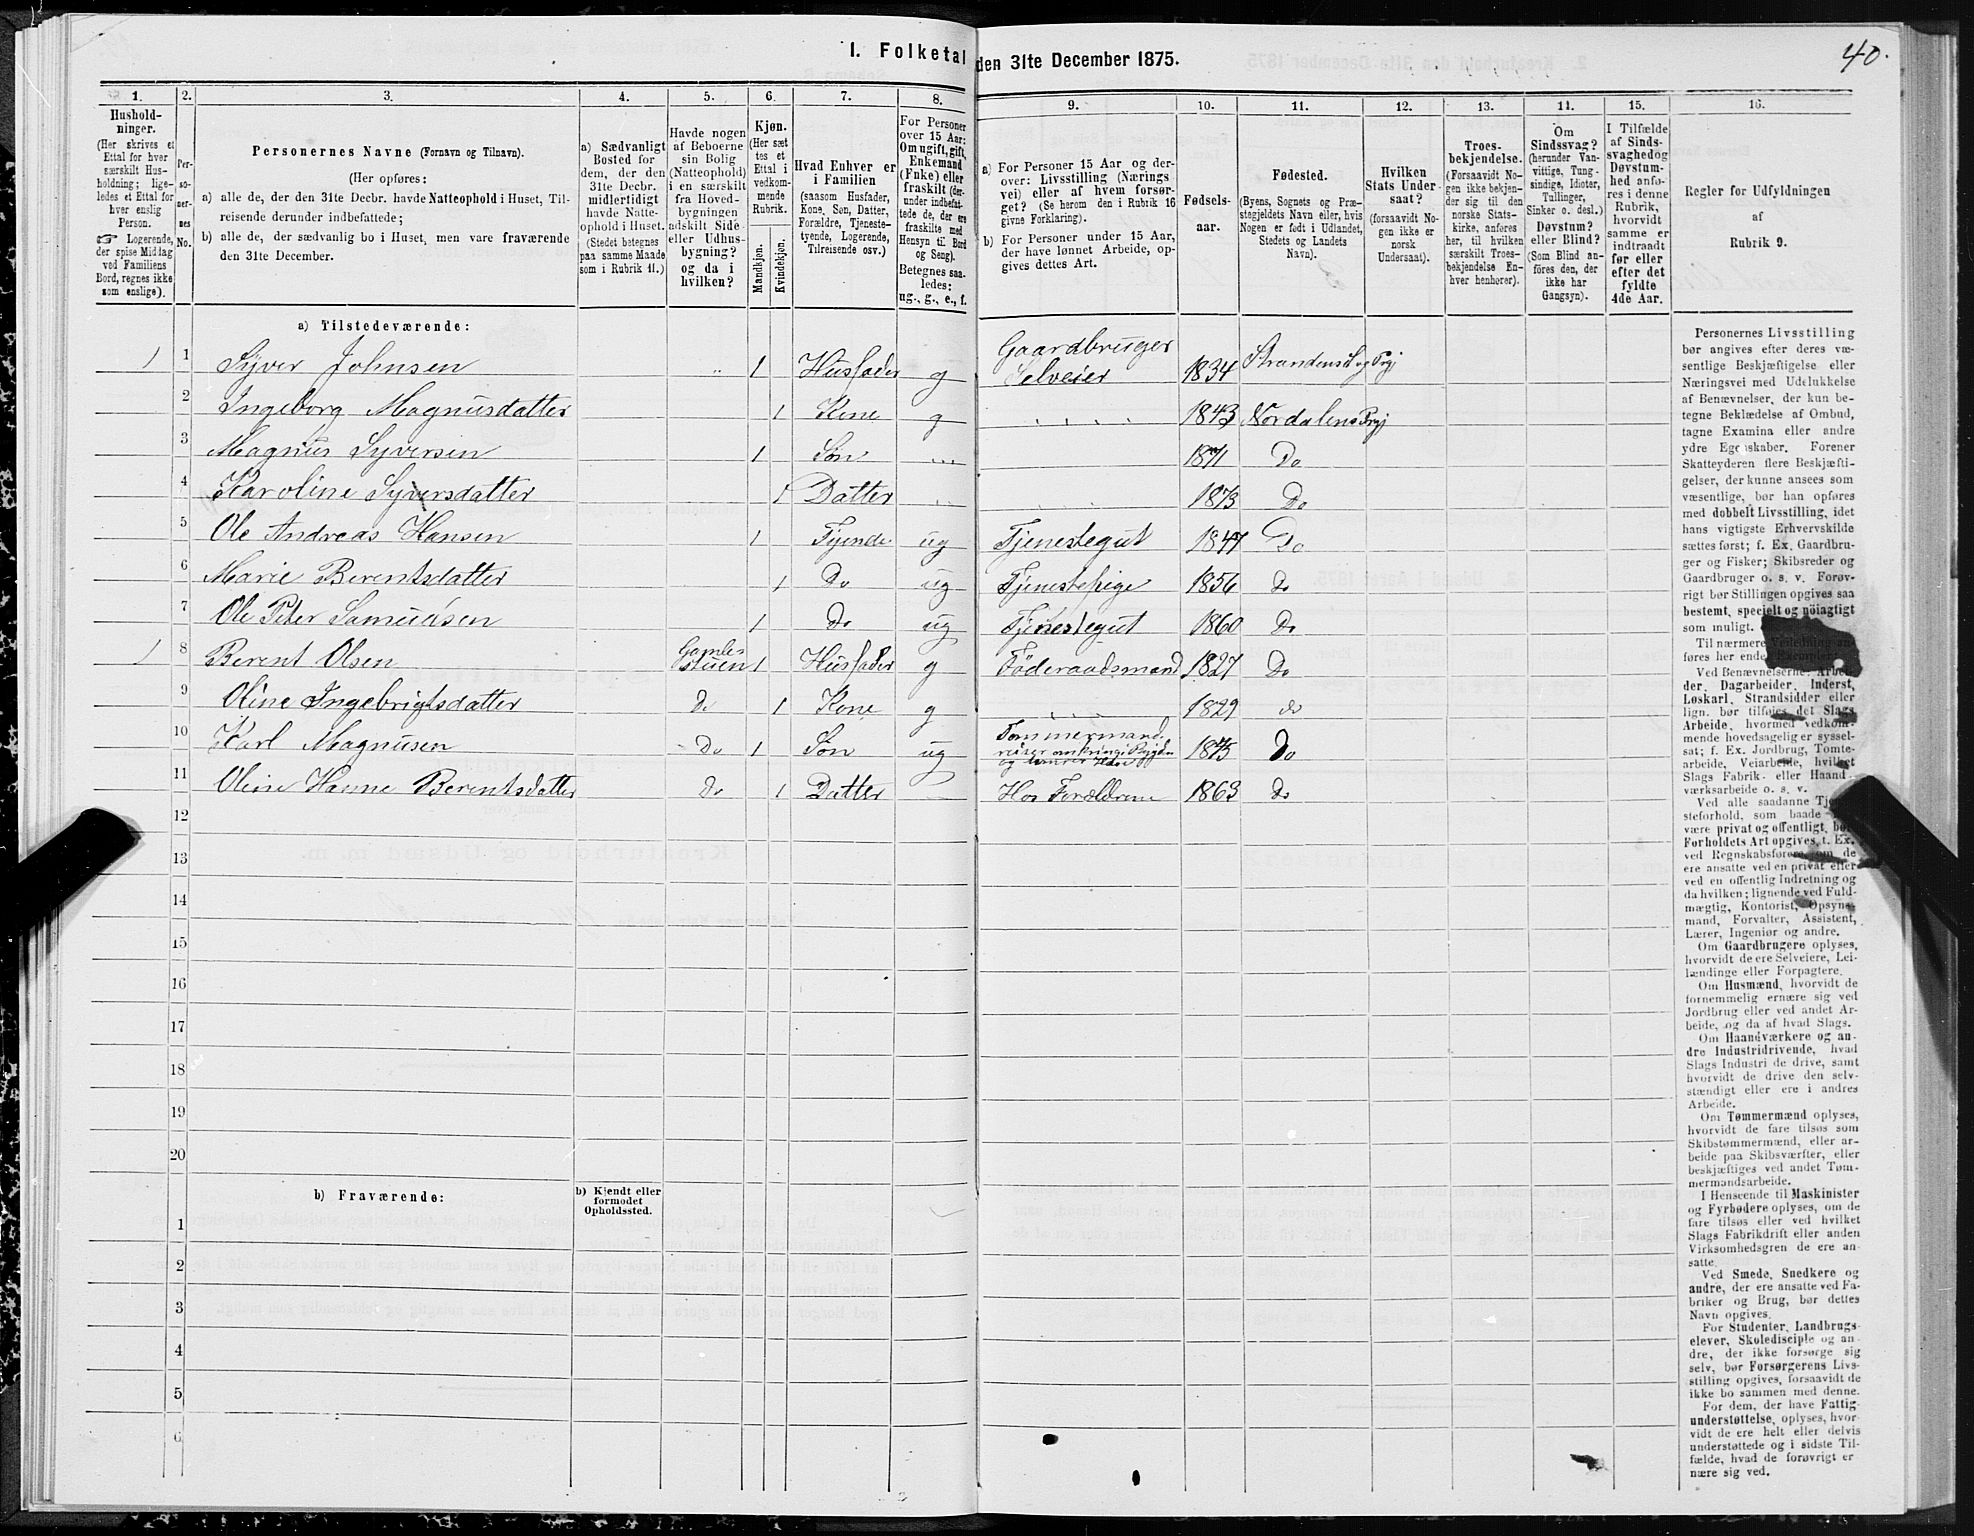 40.
I. Folketal den 31te December 1875.
1. 2. 3. 4. 5. 6. 7. 8. 9. 10. 11. 12. 13. 14. 15. 16.
Hushold-
ninger.
(Her skrives et
Ettal for hver
særskilt Hus-
holdning; lige-
ledes et Ettal for
hver enslig
Person.
☞ Logerende,
der spise Middag
ved Familiens
Bord, regnes ikke
som enslige).
Per-
so-
ner-
nes
No.
Personernes Navne (Fornavn og Tilnavn).
(Her opføres:
a) alle de, der den 31te Decbr. havde Natteophold i Huset, Til-
reisende derunder indbefattede;
b) alle de, der sædvanlig bo i Huset, men vare fraværende
den 31te December.
a) Sædvanligt
Bosted for
dem, der den
31te Decbr.
midlertidigt
havde Natte-
ophold i Huset.
(Stedet betegnes
paa samme Maade
som i Rubrik 11.)
Havde nogen
af Beboerne
sin Bolig
(Natteophold)
i en særskilt
fra Hoved-
bygningen
adskilt Side-
eller Udhus-
bygning?
og da i
hvilken?
Kjøn.
(Her sæt
tes et
Ettal i
vedkom-
mende
Rubrik.
Mandkjøn.
Kvindekjøn.
Hvad Enhver er
i Familien
(saasom Husfader,
Kone, Søn, Datter,
Forældre, Tjeneste-
tyende, Logerende,
Tilreisende osv.)
For Personer
over 15 Aar:
Om ugift, gift,
Enkemand
(Enke) eller
fraskilt (der-
under indbefat-
tede de, der ere
fraskilte med
Hensyn til Bord
og Seng).
Betegnes saa-
ledes:
ug., g., e., f.
a) For Personer 15 Aar og der-
over: Livsstilling (Nærings
vei) eller af hvem forsør-
get? (Se herom den i Rubrik 16
givne Forklaring).
b) For Personer under 15 Aar,
der have lønnet Arbeide, op-
gives dettes Art.
Fødsels-
aar.
Fødested.
(Byens, Sognets og Præ-
stegjeldets Navn eller, hvis
Nogen er født i Udlandet,
Stedets og Landets
Navn).
Hvilken
Stats Under-
saat?
(forsaavidt No-
gen ikke er
norsk
Undersaat).
Troes-
bekjendelse.
(Forsaavidt No-
gen ikke bekjen-
der sig til den
norske Stats-
kirke, anføres
her, til hvilken
særskilt Troes-
bekjendelse En-
hver henhører).
Om
Sindssvag?
(herunder Van-
vittige, Tung-
sindige, Idioter,
Tullinger,
Sinker o. desl.)
Døvstum?
eller Blind?
(Som Blind an-
føres den, der
ikke har
Gangsyn).
I Tilfælde
af Sinds-
svaghed og
Døvstum-
hed anfø-
res i denne
Rubrik,
hvorvidt
samme er
indtraadt
før eller
efter det
fyldte
4de Aar.
Regler for Udfyldningen
af
Rubrik 9.
a) Tilstedeværende:
1 1 Syver Johnsen 1 Husfader g Gaardbruger Selveier 1834 Strandens S og Prgj
2 Ingeborg Magnusdatter 1 Kone g 1843 Nordalens Prgj
3 Magnus Syversen 1 Søn 1871 Do
4 Karoline Syversdatter 1 Datter 1873 Do
5 Ole Andreas Hansen 1 Tyende ug Tjenestegut 1847 Do
6 Marie Berentsdatter 1 Do ug Tjenestepige 1856 Do
7 Ole Peter Samuelsen 1 Do ug Tjenestegut 1860 Do
1 8 Berent Olsen Gamlestuen 1 Husfader g Föderaadsmand 1827 Do
9 Oline Ingebrigtsdatter Do 1 Kone g 1829 do
10 Karl Magnusen Do 1 Søn ug Tommermand reiser omkring i Bygden og 1845 Do
11 Oline Hanne Berentsdatter Do 1 Datter Hos Forældrene 1863 Do
12
13
14
15
16
17
18
19
20
b) Fraværende:
b) Kjendt eller
formodet
Opholdssted.
1
2
3
4
5
6
Personernes Livsstilling
bør angives efter deres væ-
sentlige Beskjæftigelse eller
Næringsvei med Udelukkelse
af Benævnelser, der kun be-
tegne Beklædelse af Ombud,
tagne Examina eller andre
ydre Egenskaber. Forener
Skatteyderen flere Beskjæfti-
gelser, der kunne ansees som
væsentlige, bør han opføres
med dobbelt Livsstilling, idet
hans vigtigste Erhvervskilde
sættes først; f. Ex. Gaardbru-
ger og Fisker; Skibsreder og
Gaardbruger o. s. v. Forøv-
rigt bør Stillingen opgives saa
bestemt, specielt og nöiagtigt
som muligt.
Til nærmere Veiledning an-
føres her ende
Ved Benævnelserne: Arbei-
der, Dagarbeider, Inderst,
Løskarl, Strandsidder eller
lign. bør tilføies det Slags
Arbeide, hvormed vedkom-
mende hovedsagelig er syssel-
sat; f. Ex. Jordbrug, Tomte-
arbeide, Veiarbeide, hvilket
Slags Fabrik- eller Haand-
værksarbeide o. s. v.
Ved alle saadanne Tje-
steforhold, som baade
være privat og offentligt, bør
Forholdets Art opgives, t. Ex.
ved Regnskabsførere, om de
ere ansatte ved en privat eller
ved en offentlig Indretning og
da hvilken; lignende ved Fuld-
mægtig, Kontorist, Opsyns-
mand, Forvalter, Assistent,
Lærer, Ingeniør og andre.
Om Gaardbrugere oplyses,
hvorvidt de ere Selveiere, Lei-
lændinge eller Forpagtere.
Om Husmænd, hvorvidt de
fornemmelig ernære sig ved
Jordbrug eller ved andet Ar-
beide, og da af hvad Slags.
Om Haandværkere og an-
dre Industridrivende, hvad
Slags Industri de drive, samt
hvorvidt de drive den selv-
stændigt eller ere i andres
Arbeide.
Om Tømmermænd oplyses,
hvorvidt de fare tilsøs som
Skibstømmermænd, eller ar-
beide paa Skibsværfter, eller
beskjæftiges ved andet Tøm-
mermandsarbeide.
I Henseende til Maskinister
og Fyrbødere oplyses, om de
fare tilsøs eller ved hvilket
Slags Fabrikdrift eller anden
Virksomhedsgren de ere an-
satte.
Ved Smede, Snedkere og
andre, der ere ansatte ved Fa-
briker og Brug, bør dettes
Navn opgives.
For Studenter, Landbrugs-
elever, Skoledisciple og an-
dre, der ikke forsørge sig
selv, bør Forsørgerens Livs-
stilling opgives, forsaavidt de
ikke bo sammen med denne.
For dem, der have Fattig-
understøttelse, oplyses, hvor-
vidt de ere helt eller delvis
understøttede og i sidste Til-
fælde, hvad de forøvrigt er
nære sig ved.